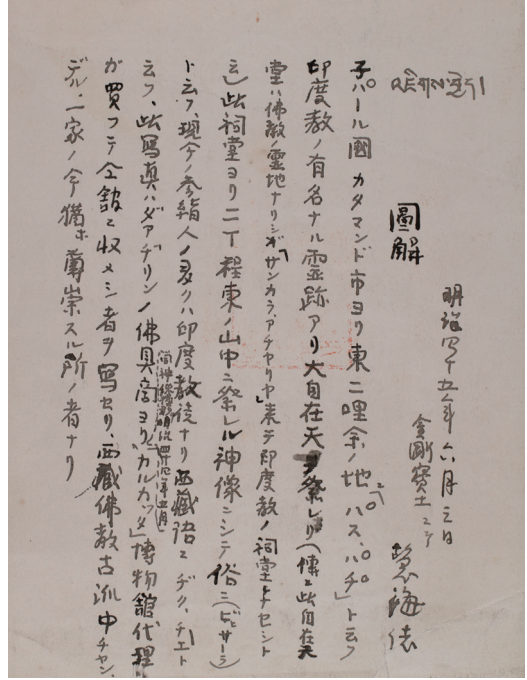 འཇིགས་བྱེད།
明治四十五年六月三日
金剛寶土ニテ
慧海
圖解
子パール國カタマンド市ヨリ東二哩余ノ地ニ「パス、パチ」ト云フ
印度教ノ有名ナル霊跡アリ大自在天ヲ祭レリ(傳ニ此自在天
堂ハ佛教ノ霊地ナリシガ「サンカラ、アチヤリヤ」来テ印度教ノ祠堂トナセシト
云)此祠堂ヨリ二丁程東ノ山中ニ祭レル神像ニシテ俗ニ
ト云フ、現今ノ参詣人ノ多クハ印度教徒ナリ西藏語ニヂク、チエト
云フ、此寫真ハダアヂリンノ佛具商ヨリ「カルカッタ」博物舘代理
ガ買フテ仝舘ニ収メシ者ヲ寫セリ、西藏佛教古派中チヤン、
デル、一家ノ今猶ホ尊崇スル所ノ者ナリ